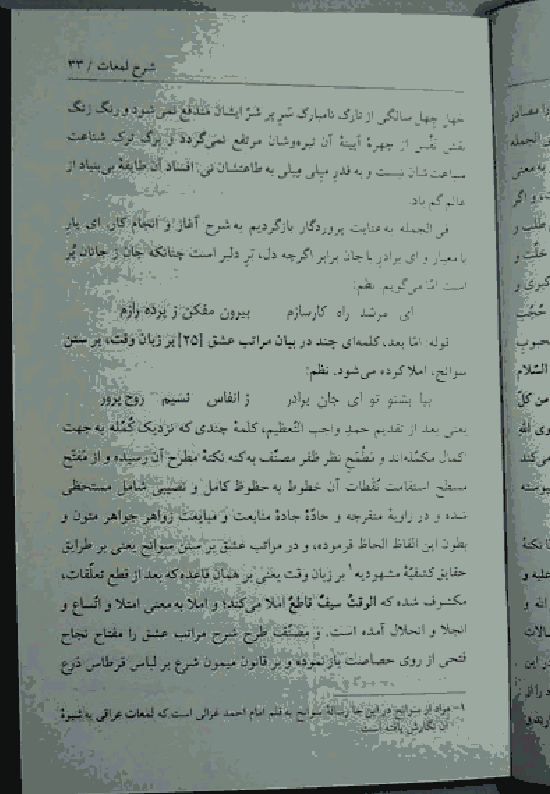 شرح لمعات / ۳۳
جهل چهل سالگی از تارک نامبارک شر پر شرّ ایشان مندفع نمی‌شود و رنگ زنگ
نقش نفْس از چهرهٔ آیینهٔ آن تیره‌وشان مرتفع نمی‌گردد و برگ ترک شناعت
بضاعت‌شان نیست و به قدر میلی میلی به طاعتشان نی. افساد آن طایفهٔ بی‌بنیاد از
عالم گم باد.
فی الجمله به عنایت پروردگار بازگردیم به شرح آغاز و انجام کار. ای یار
با معیار و ای برادر با جان برابر اگرچه دل، بَرِ دلبر است چنانکه جان ز جانان پُر
است امّا می‌گویم. نظم:
ای مرشد راه کارسازم بیرون مفکن ز پرده رازم
قوله: امّا بعد، کلمه‌ای چند در بیان مراتب عشق [۲۵] بر زبان وقت، بر سنن
سوانح، املا کرده می‌شود. نظم:
بیا بشنو تو ای جان برادر ز انفاس نسیم روح پرور
یعنی بعد از تقدیم حمدِ واجب التّعظیم، کلمهٔ چندی که نزدیک کُمَّله به جهت
کمال مکمّله‌اند و مَطْمَحِ نظر ظفر مصنّف به کنه نکتهٔ مطرح آن رسیده و از مُفتَح
مسطح استقامت نُقطات آن خطوط به حظوظ کامل و نصیبی شامل مستحظی
شده و در زاویهٔ منفرجه و حادّهٔ جادهٔ متابعت و مبایعت زواهر جواهر متون و
بطون این الفاظ الحاظ فرموده، و در مراتب عشق بر سنن سوانح یعنی بر طرایق
حقایق کشفیّهٔ مشهودیه۱ بر زبان وقت یعنی بر همان قاعده که بعد از قطع تعلّقات،
مکشوف شده که الوقتُ سیفٌ قاطعٌ املا می‌کند؛ و املا به معنی امتلا و اتّساع و
انجلا و انحلال آمده است. و مصنّف طرح شرح مراتب عشق را مفتاح نجاح
فتحی از روی حصاصت باز نموده و بر قانون میمون شرع بر لباس قرطاس دَرْع
۱- مراد از سوانح در این جا رسالهٔ سوانح به قلم امام احمد غزالی است که لمعات عراقی به شیوهٔ
آن نگارش یافته است.